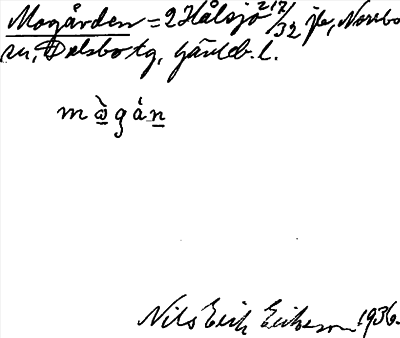 Mogården = 2 Hålsjö 217/32 jb, Norrbo
sn, Delsbo tg, Gävleb. l.
mògån
Nils Erik Eriksson 1936.